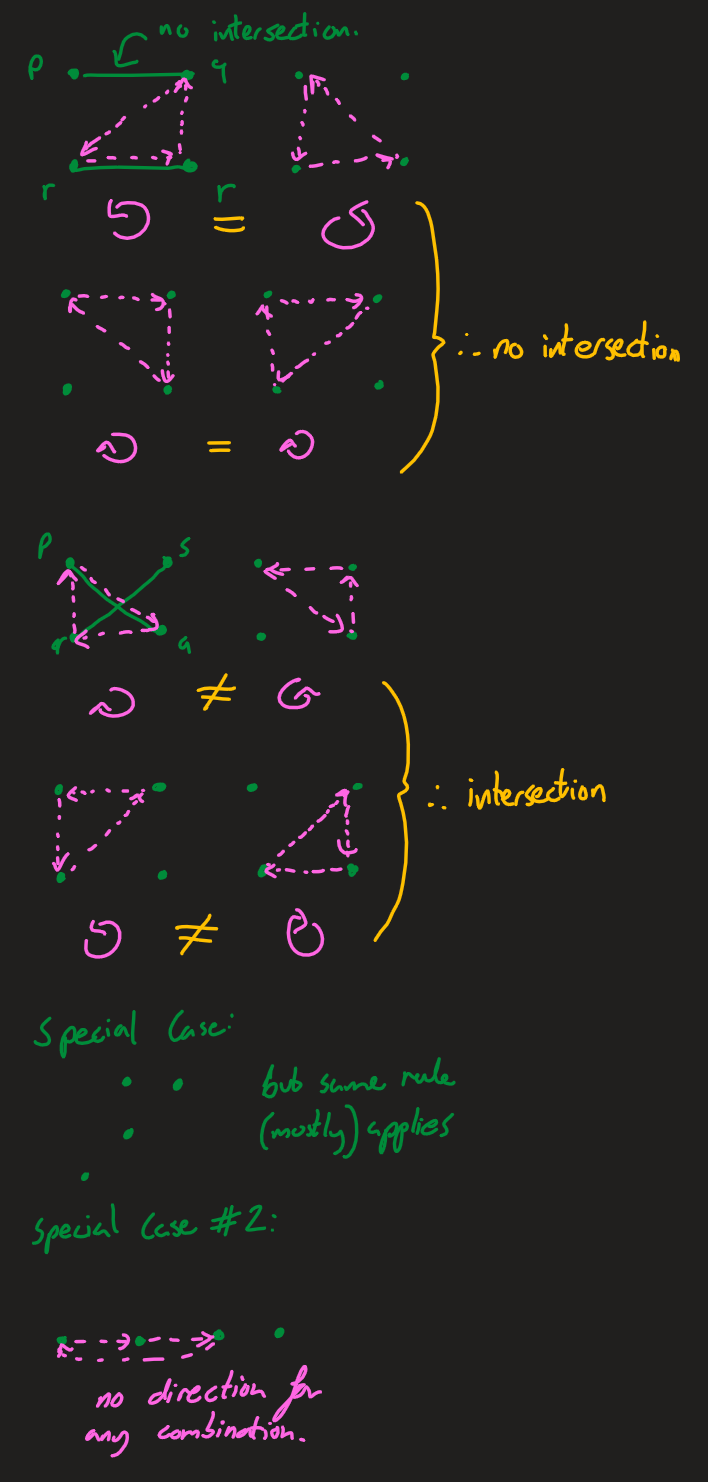 no intersection.
p q
r r
=
∴ no intersection
=
p s
r q
≠
∴ intersection
≠
Special Case:
but same rule
(mostly) applies
Special Case #2:
no direction for
any combination.